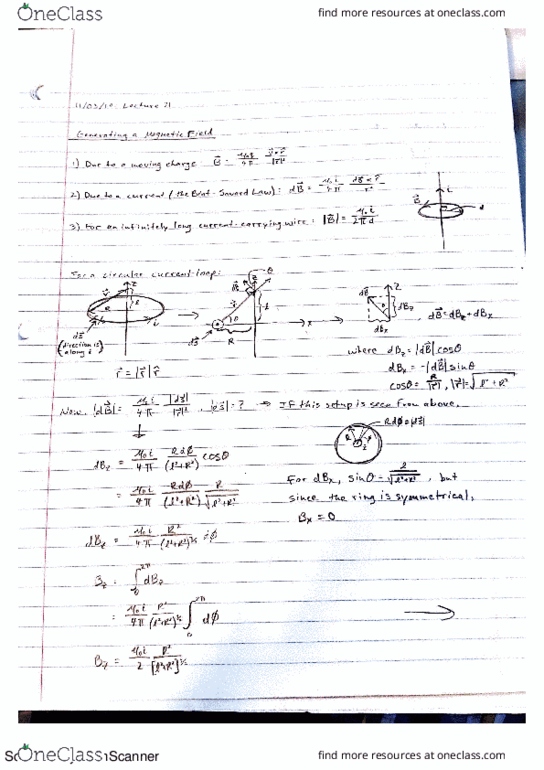 OneClass
find more resources at oneclass.com
11/03/16 Lecture 21
Generating a Magnetic Field
1) Due to a moving charge B⃗ = μ₀q/4π v⃗×r̂/|r⃗|²
2) Due to a current (the Biot-Savard Law): dB⃗ = μ₀i/4π ds⃗×r̂/r²
3) For an infinitely long current-carrying wire: |B⃗| = μ₀i/2πd
B⃗ i d
For a circular current loop:
ds⃗ (direction is along i)
r⃗ = |r⃗| r̂
dB⃗ = dB_z + dB_x
where dB_z = |dB⃗| cosθ
dB_x = -|dB⃗| sinθ
cosθ = R/|r⃗|, |r⃗| = √l² + R²
Now, |dB⃗| = μ₀i/4π |ds⃗|/|r⃗|², |ds⃗| = ? ⇒ If this setup is seen from above,
Rdφ = |ds⃗|
dB_z = μ₀i/4π Rdφ/(l²+R²) cosθ
= μ₀i/4π Rdφ/(l²+R²) R/√l²+R²
For dB_x, sinθ = l/√l²+R², but
since the ring is symmetrical,
B_x = 0
dB_z = μ₀i/4π R²/(l²+R²)^3/2 dφ
B_z = ∫₀^2π dB_z
= μ₀i/4π R²/(l²+R²)^3/2 ∫₀^2π dφ
B_z = μ₀i/2 R²/[l²+R²]^3/2
OneClass
Scanner
find more resources at oneclass.com